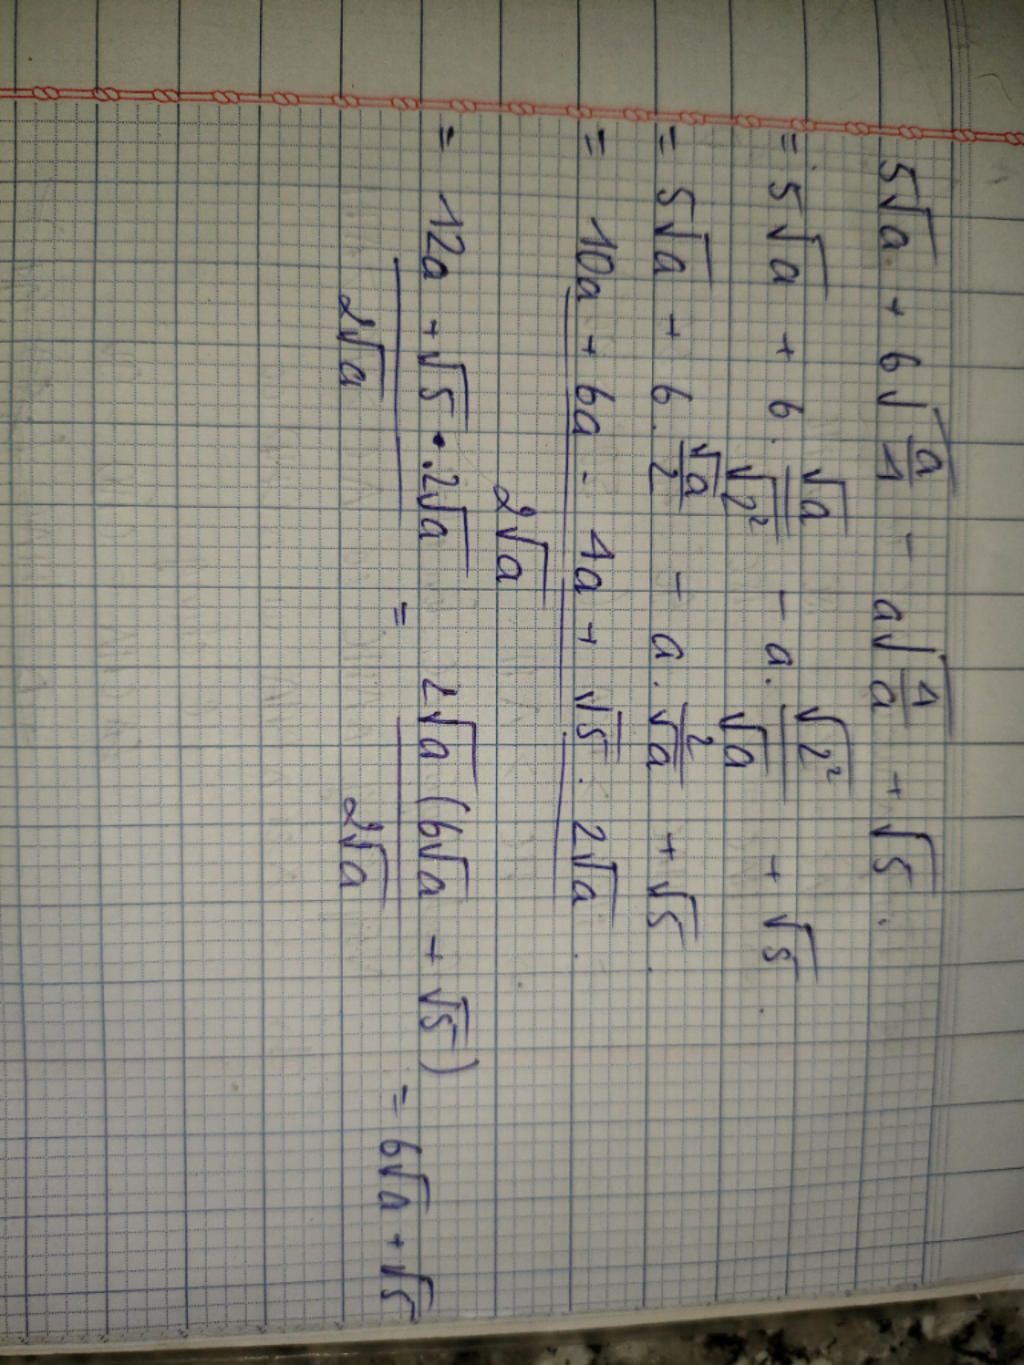 5√a + 6√(a/4) − a√(4/a) + √5.
= 5√a + 6 · √a/√2² − a · √2²/√a + √5.
= 5√a + 6 · √a/2 − a · 2/√a + √5.
= (10a + 6a − 4a + √5 · 2√a)/(2√a).
= (12a + √5 · 2√a)/(2√a) = (2√a (6√a + √5))/(2√a) = 6√a + √5